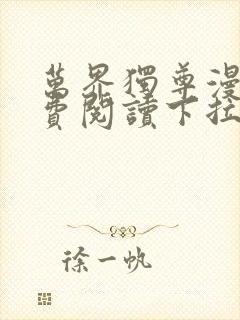 萬界獨尊漫
費閱讀下拉
徐一帆